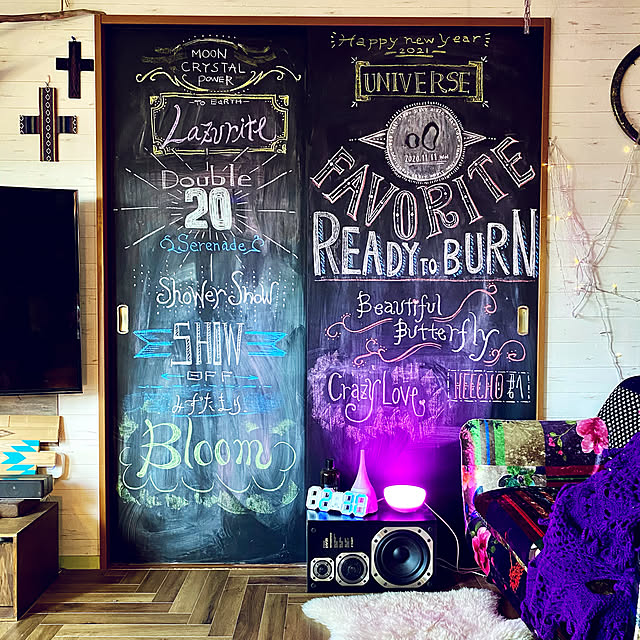 MOON
CRYSTAL
POWER
TO EARTH
Lazurite
Double
20
Serenade
Shower Snow
SHOW
OFF
みずたまり
Bloom
Happy new year
2021
UNIVERSE
FAVORITE
READY TO BURN
Beautiful
Butterfly
Crazy Love